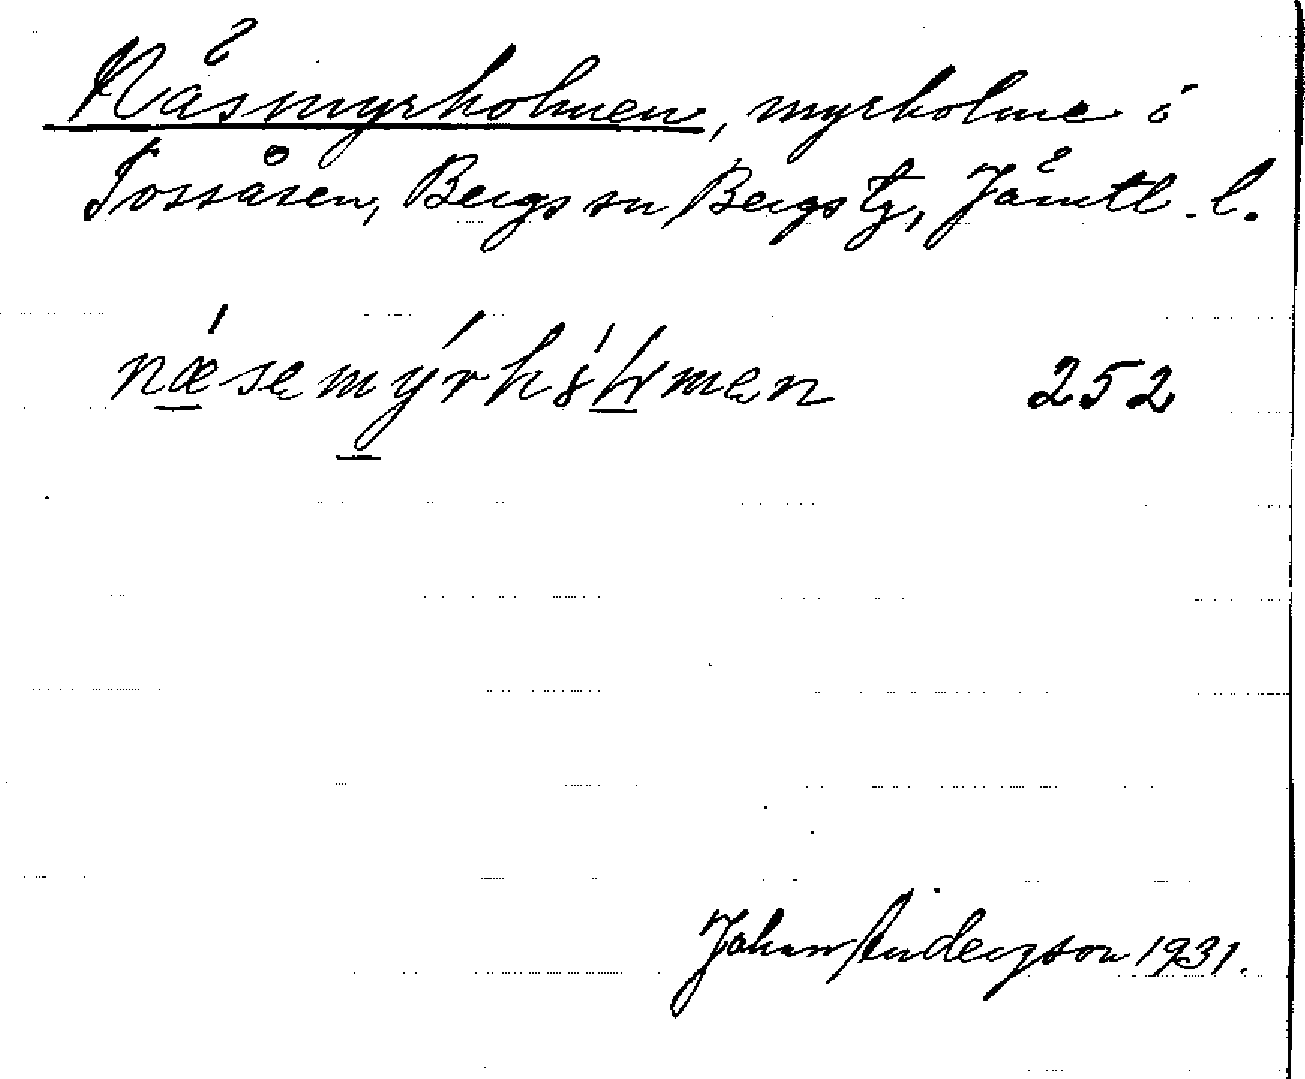 Näsmyrholmen, myrholme i
Tossåsen, Bergs sn Bergs tg, Jämtl. l.
næsemýrhólmen 252
Johan Anderson 1931.